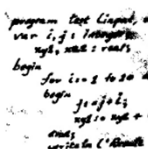 program test (input, o
var i, j : integer;
xyl, xxl : real;
begin
for i := 1 to 20 d
begin
j := j + i;
xyl := xyl +
end;
writeln ('Result